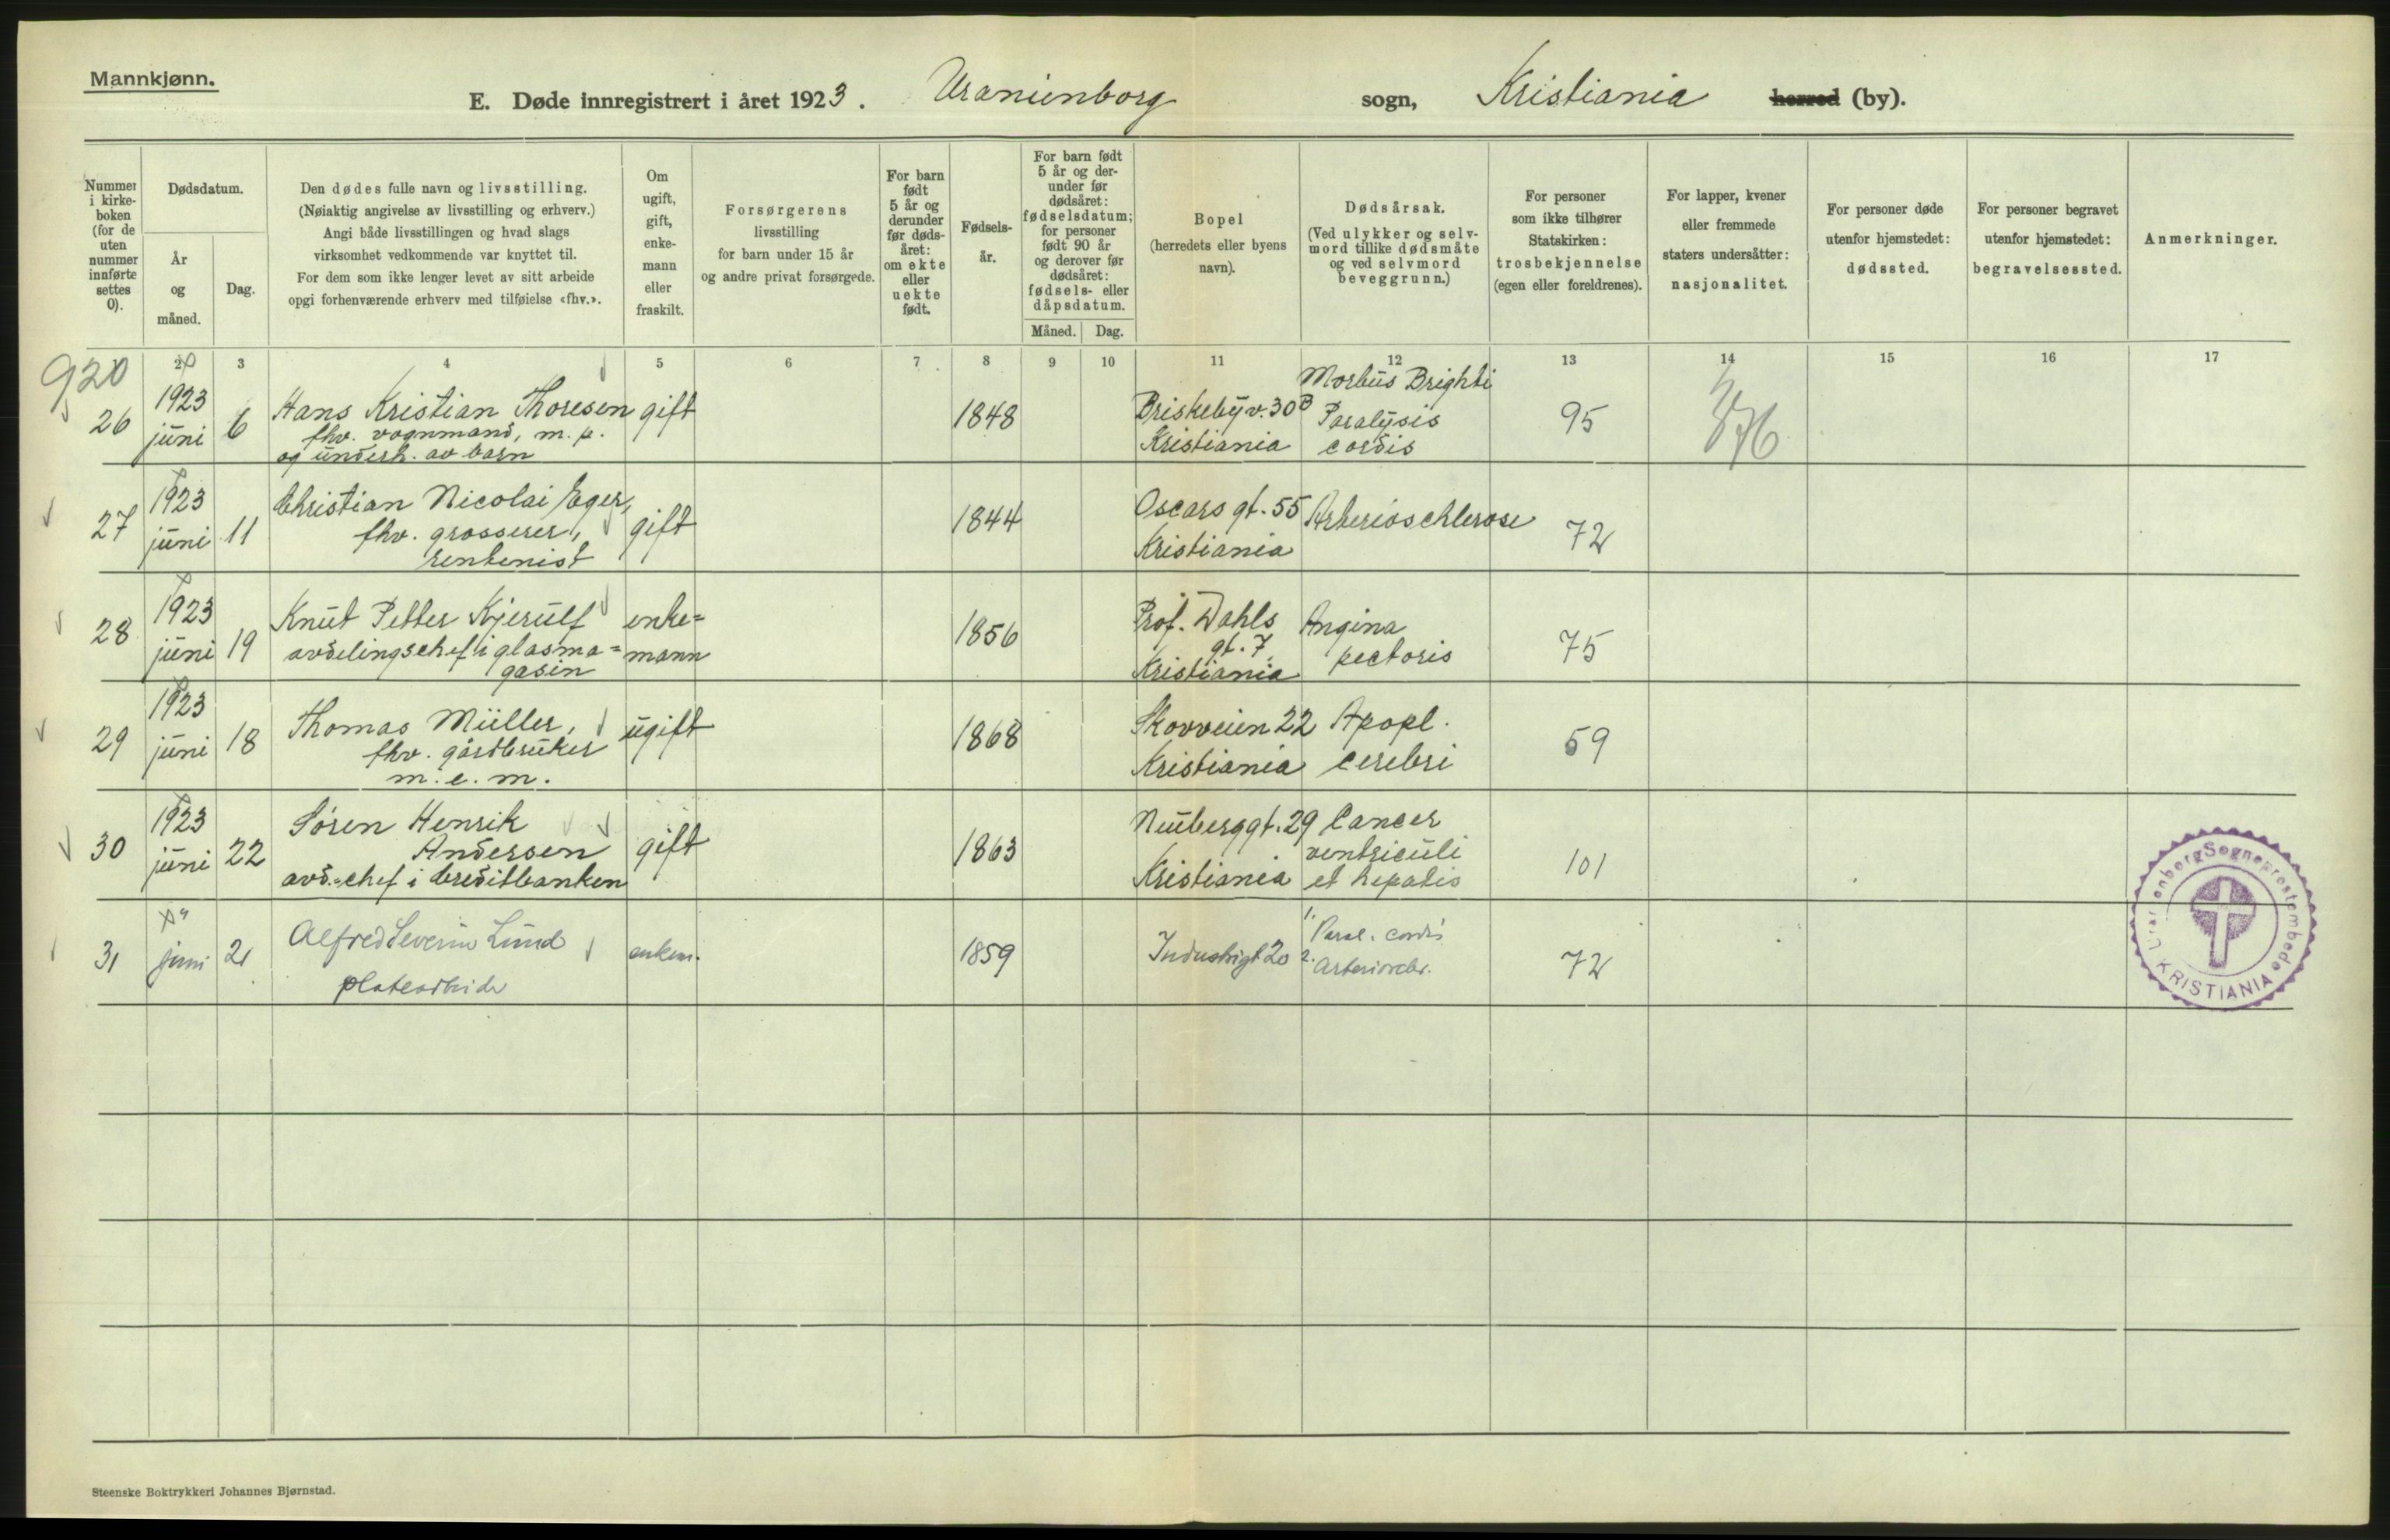 Mannkjønn.
E. Døde innregistrert i året 1923. Uranienborg sogn, Kristiania herred (by).
Nummer i kirke-boken (for de uten nummer innførte settes 0).
Dødsdatum.
År og måned.
Dag.
Den dødes fulle navn og livsstilling.
(Nøiaktig angivelse av livsstilling og erhverv.)
Angi både livsstillingen og hvad slags
virksomhet vedkommende var knyttet til.
For dem som ikke lenger levet av sitt arbeide
opgi forhenværende erhverv med tilføielse «fhv.».
Om ugift, gift, enke-mann eller fraskilt.
Forsørgerens
livsstilling
for barn under 15 år
og andre privat forsørgede.
For barn født 5 år og derunder før døds-året: om ekte eller uekte født.
Fødsels-år.
For barn født 5 år og der-under før dødsåret: fødselsdatum; for personer født 90 år og derover før dødsåret: fødsels- eller dåpsdatum.
Måned.
Dag.
Bopel
(herredets eller byens
navn).
Dødsårsak.
(Ved ulykker og selv-
mord tillike dødsmåte
og ved selvmord
beveggrunn.)
For personer
som ikke tilhører
Statskirken:
trosbekjennelse
(egen eller foreldrenes).
For lapper, kvener
eller fremmede
staters undersåtter:
nasjonalitet.
For personer døde
utenfor hjemstedet:
dødssted.
For personer begravet
utenfor hjemstedet:
begravelsessted.
Anmerkninger.
2 3 4 5 6 7 8 9 10 11 12 13 14 15 16 17
920
26 1923 juni 6 Hans Kristian Thoresen gift 1848 Briskebyv. 30B Morbus Brighti 95
fhv. vognmand, m. p. Kristiania Paralysis
og undesh. av barn cordis
27 1923 juni 11 Christian Nicolai Eger, gift 1844 Oscars gt. 55 Arterioschlerose 72
fhv. grosserer, Kristiania
rentenist
28 1923 juni 19 Knut Petter Kjerulf enke= 1856 Prof. Dahls Angina 75
avdelingschef i glasma= mann gt. 7 pectoris
gasin Kristiania
29 1923 juni 18 Thomas Müller, ugift 1868 Skovveien 22 Apopl. 59
fhv. gårdbruker Kristiania cerebri
m. e. m.
30 1923 juni 22 Søren Henrik gift 1863 Neuberggt. 29 Cancer 101
Andersen ventriculi
avd.=chef i Creditbanken Kristiania et hepatis
31 juni 21 Alfred Severin Lund enkem. 1859 Industrigt 20 1. Paral. cordis 72
platearbeider 2. Arterioscler.
Uranienborg Sogneprestembede
KRISTIANIA
Steenske Boktrykkeri Johannes Bjørnstad.